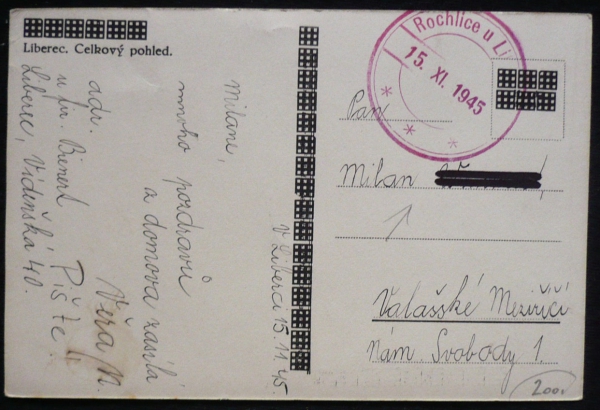 Liberec. Celkový pohled.
V Liberci 15.11.45.
Milane,
mnoho pozdravů
z domova zasílá
Věra N.
Pište!
adr.
u fir. Bienert
Liberec, Vídeňská 40.
Rochlice u Li
15. XI. 1945
Pan
Milan
Valašské Meziříčí
Nám. Svobody 1.
200,-